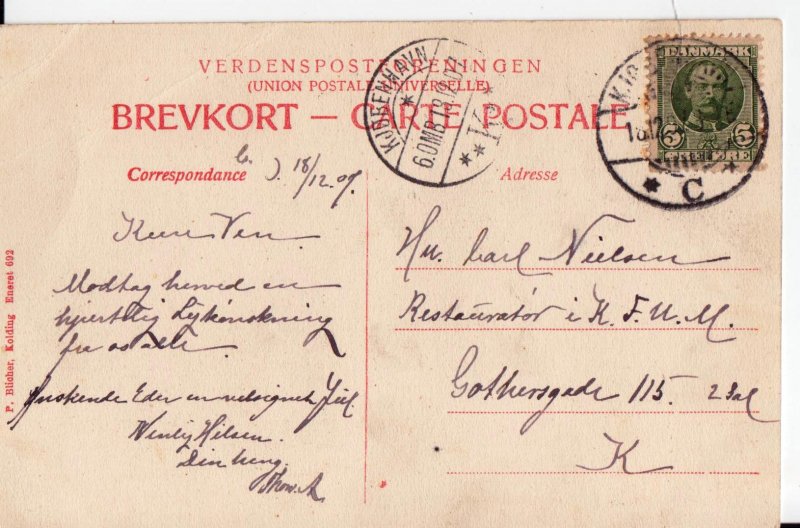 VERDENSPOSTFORENINGEN
(UNION POSTALE UNIVERSELLE)
BREVKORT — CARTE POSTALE
Correspondance
Adresse
18/12.07.
Kære Ven.
Modtag herved en
hjertelig Lykønskning
fra os alle
Ønskende Eder en velsignet Jul
Venlig Hilsen.
Din heng.
Thow. A
Hr. Carl Nielsen
Restauratør i K. F. U. M.
Gothersgade 115. 2 Sal
K
KJØBENHAVN
6.OMB 18.12.07
K.
DANMARK
5 5
ØRE
18.12
C
P. Blicher, Kolding Eneret 692